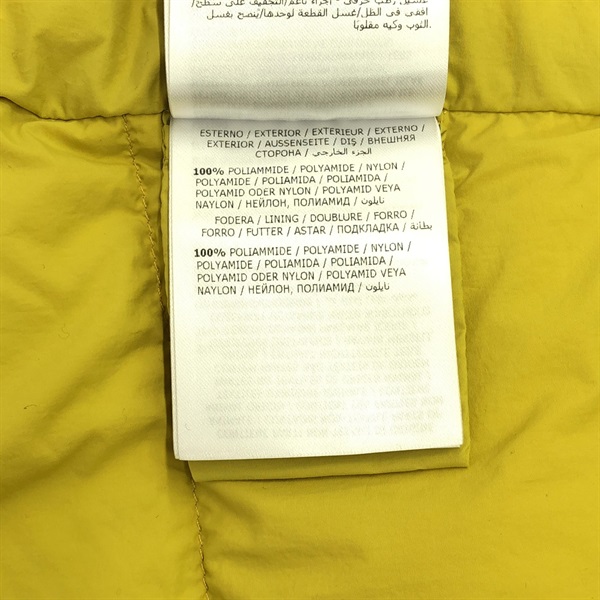 افقي في الظل/غسل القطعة لوحدها/يُنصح بغسل
الثوب وكيه مقلوبًا.
ESTERNO / EXTERIOR / EXTERIEUR / EXTERNO /
EXTERIOR / AUSSENSEITE / DIŞ / ВНЕШНЯЯ
СТОРОНА / الجزء الخارجي
100% POLIAMMIDE / POLYAMIDE / NYLON /
POLYAMIDE / POLIAMIDA / POLIAMIDA /
POLYAMID ODER NYLON / POLYAMID VEYA
NAYLON / НЕЙЛОН, ПОЛИАМИД / نايلون
FODERA / LINING / DOUBLURE / FORRO /
FORRO / FUTTER / ASTAR / ПОДКЛАДКА / بطانة
100% POLIAMMIDE / POLYAMIDE / NYLON /
POLYAMIDE / POLIAMIDA / POLIAMIDA /
POLYAMID ODER NYLON / POLYAMID VEYA
NAYLON / НЕЙЛОН, ПОЛИАМИД / نايلون